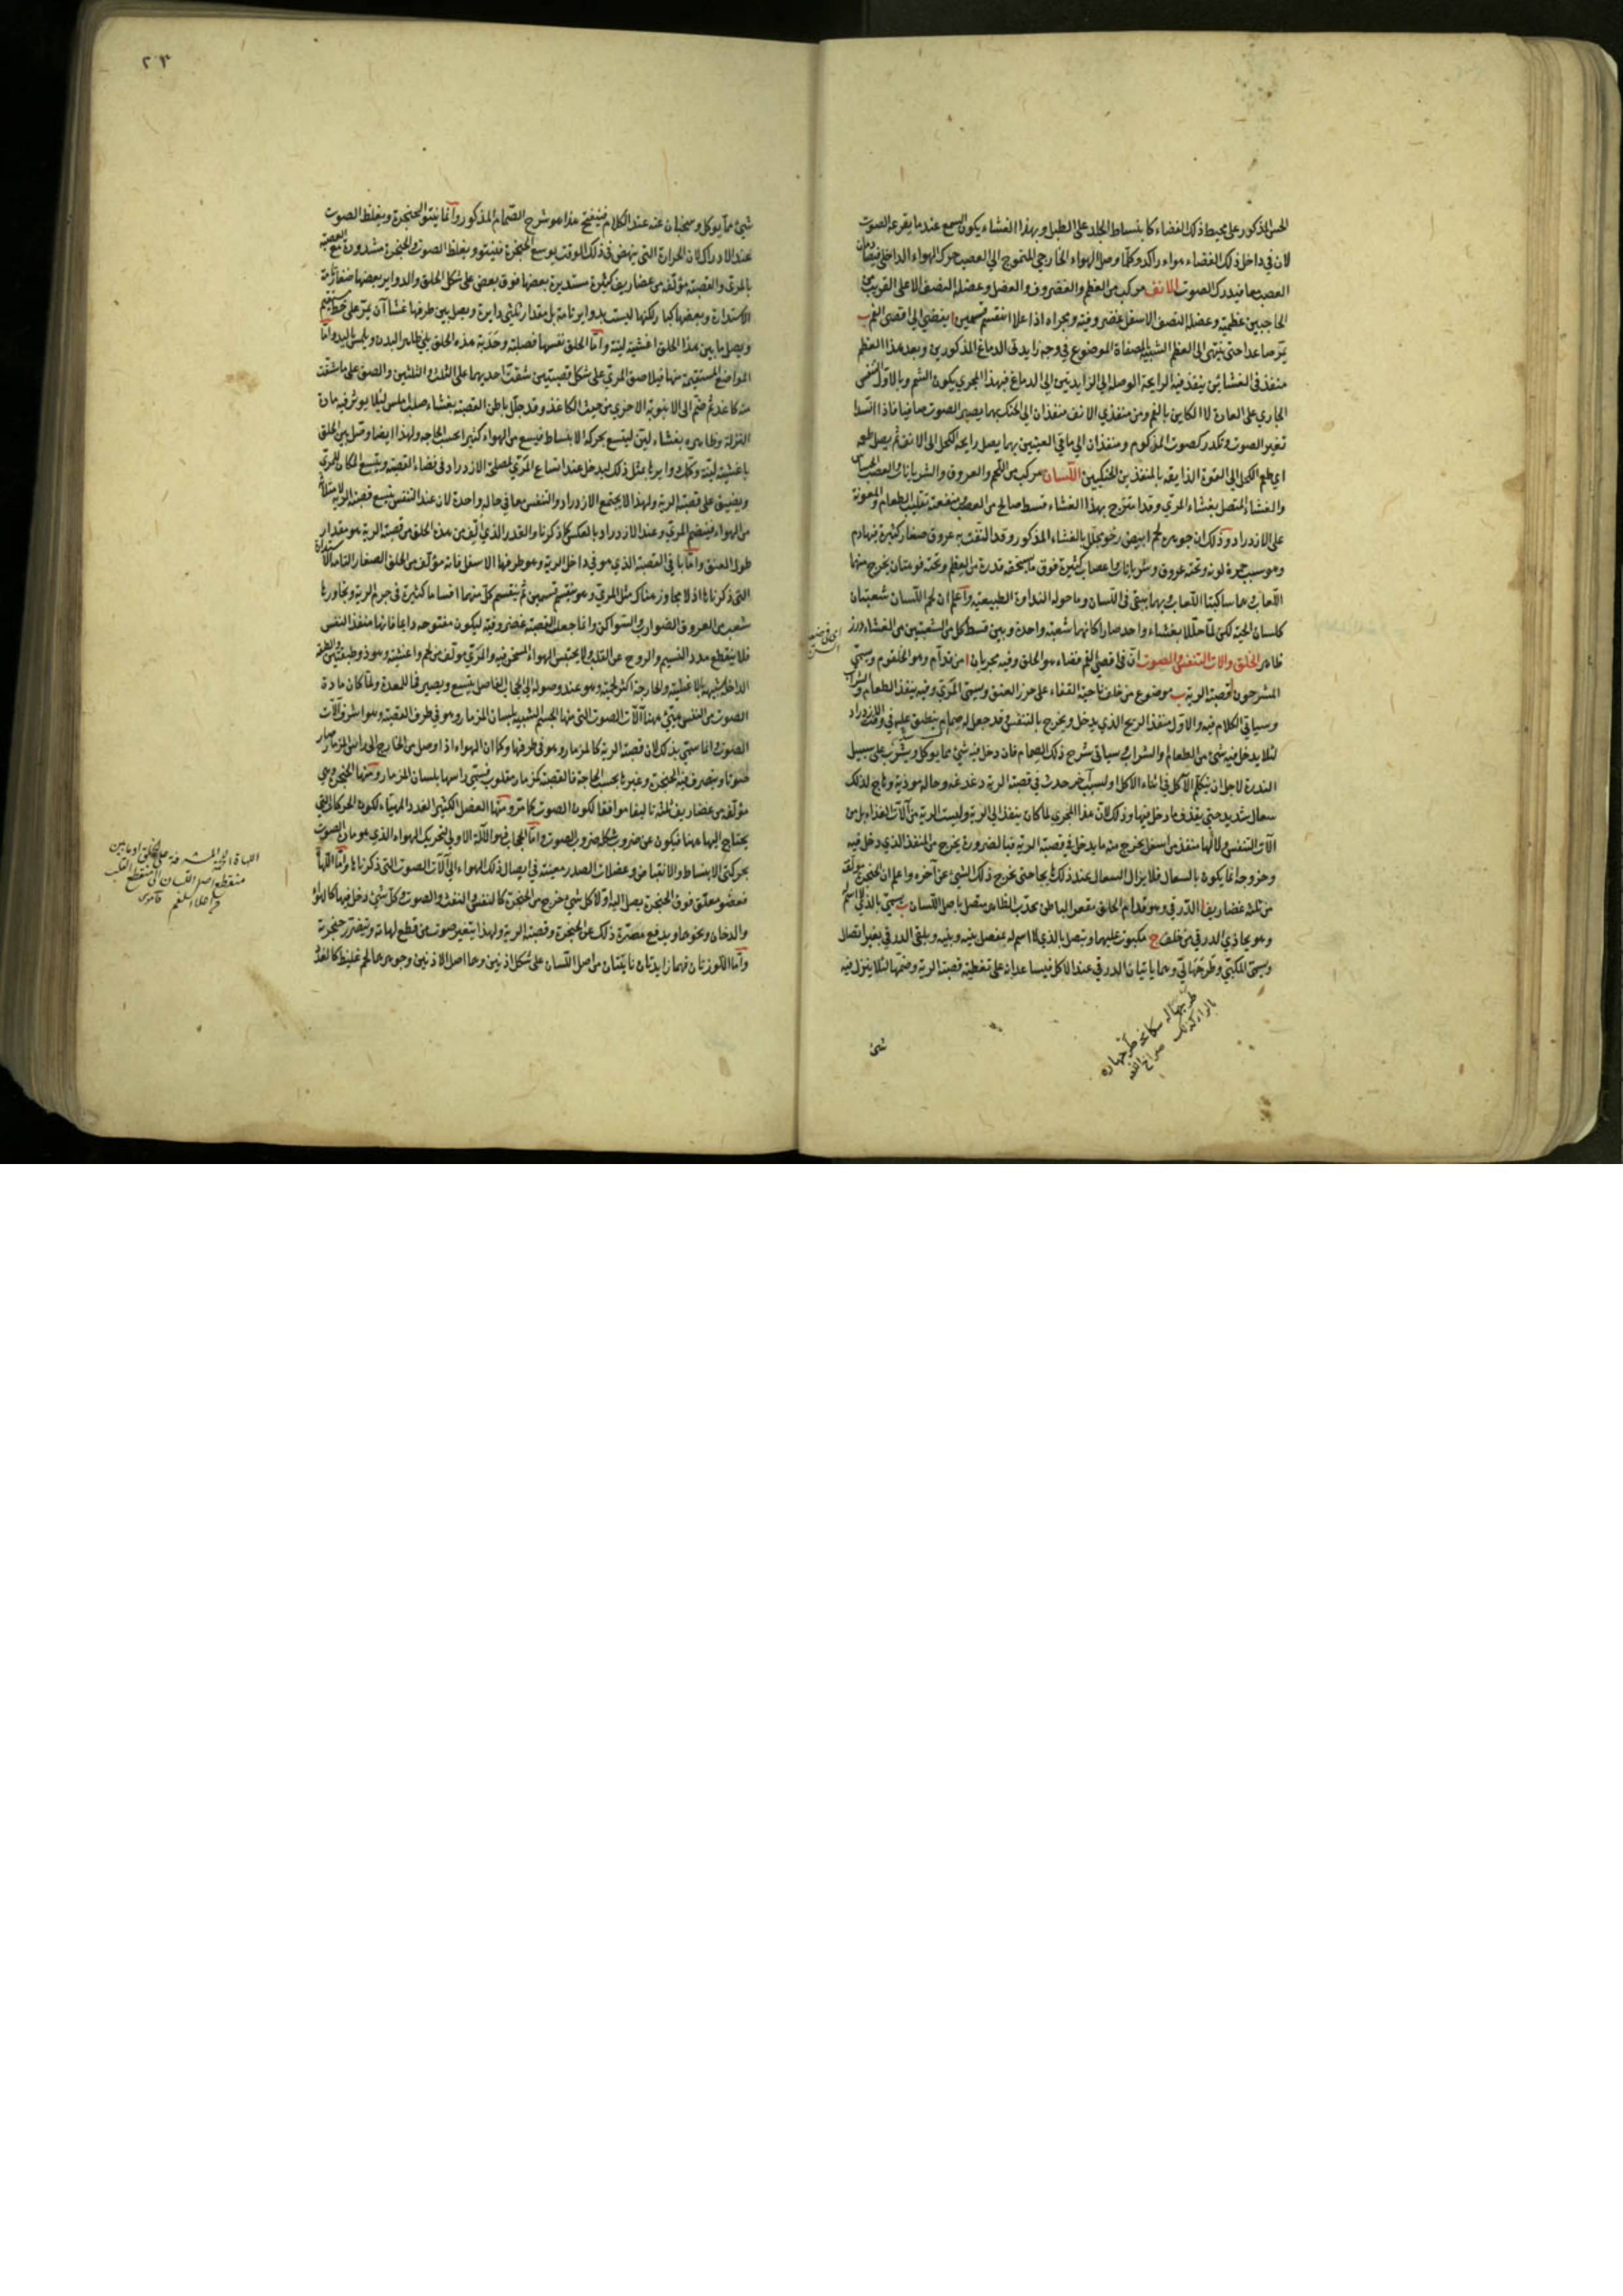 الحس المذكور على محيط ذلك الفضاء كانبساط الجلد على الطبل وبهذا الغشاء يكون السمع عندما يقرعه الصوت
لان في داخل ذلك الفضاء هواء راكد وكلما وصل الهواء الخارجي المتموج الى العصب حرك الهواء الداخل
العصب بها فيدرك الصوت الانف مركب من العظم والغضروف والعضل وعضله النصف الاعلى القريب من
الحاجبين عظمية وعضله النصف الاسفل غضروفية ومجراه اذا علا انقسم قسمين ا يفضي الى اقصى الفم ب
يمر صاعدا حتى ينتهي الى العظم الشبيه بالمصفاة الموضوع في وجه زايدتي الدماغ المذكورين وبعد هذا العظم
منفذ في الغشائين ينفذ فيه الرايحة الواصلة الى الزايدتين الى الدماغ فبهذا المجرى يكون الشم وبالاول التنفس
الجاري على العادة لا الكاين بالفم ومن منفذي الانف منفذان الى الحنك بهما يصير الصوت صافيا فاذا انسدا
تغير الصوت وتكدر كصوت المزكوم ومنفذان الى ماقي العينين بهما يصل رايحة الكحل الى الانف ثم يصل طعمه
اي طعم الكحل الى القوة الذايقة بالمنفذين الحنكيين اللسان مركب من اللحم والعروق والشريانات والعصب الحساس
والغشاء المتصل بغشاء المري وقد امتزج بهذا الغشاء قسط صالح من العصب ومنفعته تقليب الطعام والمعونة
على الازدراد وذلك ان جوهره لحم ابيض رخو مجلل بالغشاء المذكور وقد التفت به عروق صغار كثيرة فيها دم
وهو سبب حمرة لونه وتحته عروق وشريانات واعصاب كثيرة فوق ما يستحقه قدره من العظم وتحته فوهتان يخرج منها
اللعاب وهما ساكبتا اللعاب وبهما يبقى في اللسان وما حوله النداوة الطبيعية واعلم ان لحم اللسان شعبتان
كلسان الحية لكن لما جللا بغشاء واحد صارا كانهما شعبة واحدة وبين قسط كل من الشعبتين من الغشاء درز
ظاهر الحلق والات التنفس والصوت ان في اقصى الفم فضاء هو الحلق وفيه مجريان ا من قدام وهو الحلقوم ويسمى
المشرحون قصبة الرية ب موضوع من خلف ناحية القفاء على خرز العنق ويسمى المري وفيه ينفذ الطعام والشراب
وسياتي الكلام فيه والاول منفذ الريح الذي يدخل ويخرج بالتنفس وقد جعل له صمام ينطبق عليه في وقت الازدراد
لئلا يدخل فيه شيء من الطعام والشراب وسياتي شرح ذلك الصمام فان دخل فيه شيء مما يوكل ويشرب على سبيل
الندرة لاجل ان يتكلم الآكل في اثناء الاكل او لسبب آخر حدث في قصبة الرية دغدغة وحالة موذية وهاج لذلك
سعال شديد حتى يقذف ما دخل فيها وذلك لان هذا المجرى لما كان ينفذ الى الرية وليست الرية من آلات الغذاء بل من
آلات التنفس ولا لها منفذ من اسفل يخرج منه ما يدخل في قصبة الرية فبالضرورة يخرج من المنفذ الذي دخل فيه
وخروجه انما يكون بالسعال فلا يزال السعال عند ذلك هايجا حتى يخرج ذلك الشيء عن آخره واعلم ان الحنجرة مولفة
من ثلثة غضاريف ا الدرقي وهو قدام الحلق مقعر الباطن محدب الظاهر متصل باصل اللسان ب يسمى بالذي لا اسم له
وهو يحاذي الدرقي من خلف ج مكبوب عليهما ويتصل بالذي لا اسم له بمفصل بينه وبينه ويلقى الدرقي بغير اتصال
ويسمى المكبي وطرجهالي وهما ياتيان الدرقي عند الاكل فيساعدانه على تغطية قصبة الرية وضمها لئلا ينزل فيه
شيء
٢٣
شيء مما يوكل وينحيان عنه عند الكلام فينفتح هذا هو شرح الصمام المذكور وانما ينتو الحنجرة ويغلظ الصوت
عند الادراك لان الحرارة التي ينهض في ذلك الوقت يوسع الحنجرة فينتو ويغلظ الصوت والحنجرة مشدودة مع القصبة
بالمري والقصبة مؤلفة من غضاريف كثيرة مستديرة بعضها فوق بعض على شكل الحلق والدواير بعضها صغار تامة
الاستدارة وبعضها كبار لكنها ليست بدواير تامة بل مقدار ثلثي دايرة ويصل بين طرفها غشاآن يمر على خط مستقيم
ويصل ما بين هذا الحلق اغشية لينة واما الحلق نفسها فصلبة وحدبة هذه الحلق يلي ظاهر البدن ويلمس باليد واما
المواضع المستقيمة منها فيلاصق المري على شكل قصبتين شقت احديهما على الثلث والثلثين والصق على ما شقت
منه كاغد ثم ضم الى الانبوبة الاخرى من حيث الكاغذ وقد جلل باطن القصبة بغشاء صلب املس لئلا يوثر فيه مادة
النزلة وظاهره بغشاء لين ليتسع بحركة الانبساط فيسع من الهواء كثيرا بحسب الحاجة ولهذا ايضا وصل بين الحلق
باغشية لينة وتكون دوايرها مثل ذلك ليدخل عند اتساع المري لمصلحة الازدراد في فضاء القصبة ويتسع المكان للمري
ويضيق على قصبة الرية ولهذا لا يجتمع الازدراد والتنفس معا في حالة واحدة لان عند التنفس يتسع قصبة الرية لامتلائه
من الهواء فينضم المري وعند الازدراد بالعكس كما ذكرنا والقدر الذي الف من هذه الحلق من قصبة الرية هو مقدار
طول العنق واما باقي القصبة الذي هو في داخل الرية وهو طرفها الاسفل فانه مؤلف من الحلق الصغار التامة الاستدارة
التي ذكرناها اذ لا مجاوز هناك مثل المري وهو ينقسم قسمين ثم ينقسم كل منهما اقساما كثيرة في جرم الرية ويجاورها
شعب من العروق الضوارب والسواكن وانما جعلت القصبة غضروفية ليكون مفتوحة دايما فانها منفذ النفس
فلا ينقطع مدد النسيم والروح عن القلب ولا يحتبس الهواء المسخن فيه والمري مولف من لحم واغشية وهو ذو طبقتين والطبقة
الداخلة شبيهة بالاغشية والخارجة اكثر لحمية وهو عند وصوله الى الحجاب الفاصل يتسع ويصير فما للمعدة ولما كان مادة
الصوت من النفس هيئ ههنا آلات الصوت التي منها الجسم الشبيه بلسان المزمار وهو في طرف القصبة وهو اشرف آلات
الصوت وانما سمي بذلك لان قصبة الرية كالمزمار وهو في طرفها وكما ان الهواء اذا وصل من الخارج الى راس المزمار صار
صوتا ويتصرف فيه الحنجرة وغيرها بحسب الحاجة فالقصبة كمزمار مقلوب فيسمى راسها بلسان المزمار ومنها الحنجرة وهي
مؤلفة من غضاريف ثلثة تاليفا موافقا لكون الصوت كما مر ومنها العضل الكثير العدد المهياة لكون الحركات التي
يحتاج اليها ههنا فيكون عن ضروب شكله ضروب الصوت واما الحجاب فهو الآلة الاولى لتحريك الهواء الذي هو مادة الصوت
بحركتي الانبساط والانقباض وعضلات الصدر معينة في ايصال ذلك الهواء الى آلات الصوت التي ذكرناها واما اللهاة
فعضو معلق فوق الحنجرة يصل اليه اولا كل شيء خرج من الحنجرة كالنفس والنفث والصوت وكل شيء دخل فيها كالهواء
والدخان ونحوهما ويدفع مضرة ذلك عن الحنجرة وقصبة الرية ولهذا يتغير صوت من قطع لهاته ويتضرر حنجرته
واما اللوزتان فهما زايدتان ناتيتان من اصل اللسان على شكل اذنين وهما اصل الاذنين وجوهرهما لحم غليظ كالغدد